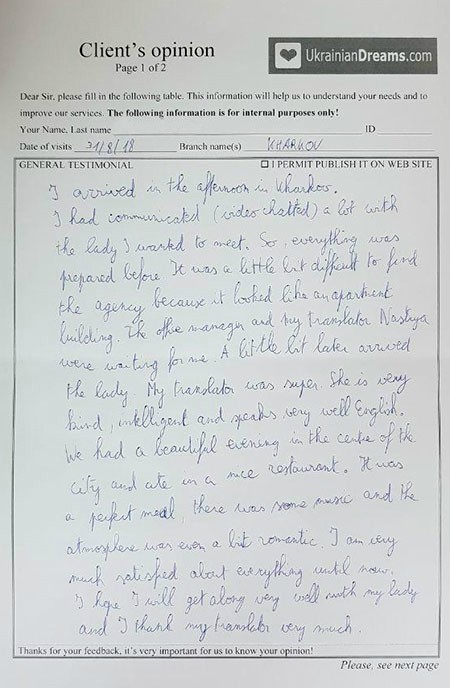 Client's opinion
Page 1 of 2
UkrainianDreams.com
Dear Sir, please fill in the following table. This information will help us to understand your needs and to
improve our services. The following information is for internal purposes only!
Your Name, Last name ID
Date of visits 21/8/18 Branch name(s) KHARKOV
GENERAL TESTIMONIAL ☐ I PERMIT PUBLISH IT ON WEB SITE
I arrived in the afternoon in Kharkov.
I had communicated (videochatted) a lot with
the lady I wanted to meet. So, everything was
prepared before. It was a little bit difficult to find
the agency because it looked like an apartment
building. The office manager and my translator Nastiya
were waiting for me. A little bit later arrived
the lady. My translator was super. She is very
kind, intelligent and speaks very well English.
We had a beautiful evening in the centre of the
city and ate in a nice restaurant. It was
a perfect meal, there was some music and the
atmosphere was even a bit romantic. I am very
much satisfied about everything until now.
I hope I will get along very well with my lady
and I thank my translator very much.
Thanks for your feedback, it's very important for us to know your opinion!
Please, see next page